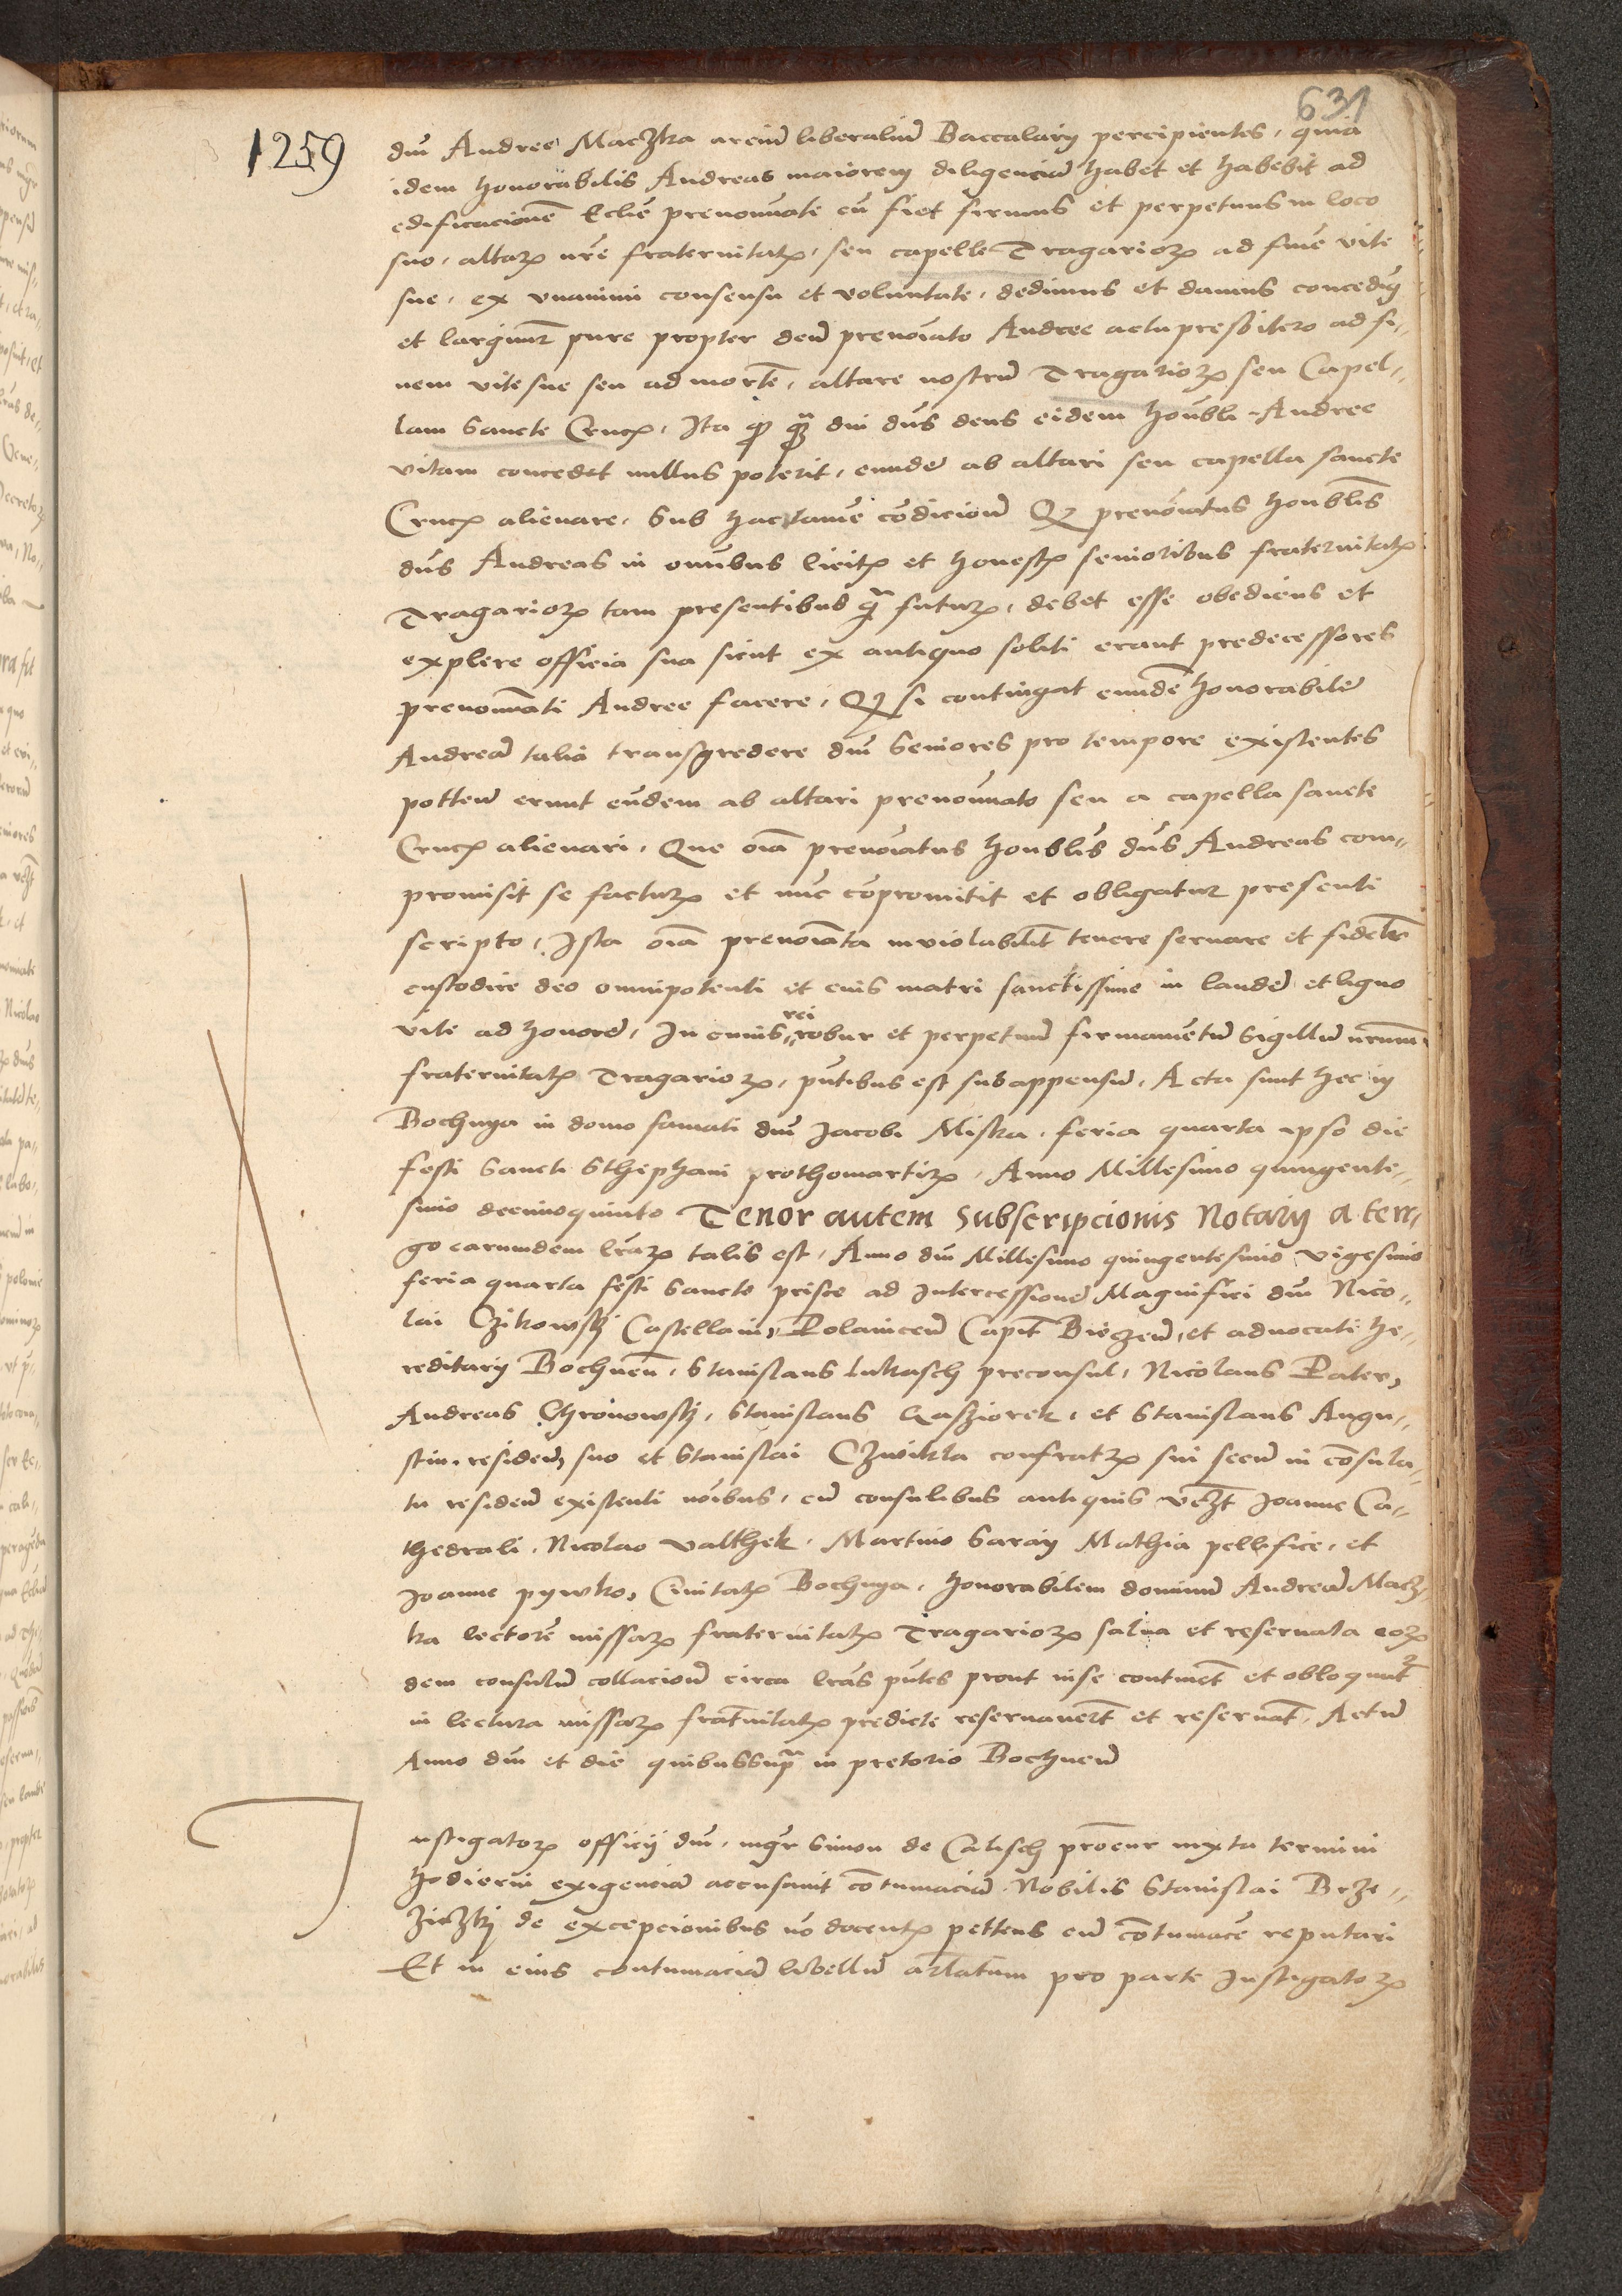 631
1259
dnī Andree Maczka arciū liberaliū Baccalarij percipientes, quia
idem honorabilis Andreas maiorem diligenciā habet et habebit ad
edificacionē Ecclīe prenomīate cū fiet firmus et perpetuus in loco
suo, altarꝭ nr̄e fraternitatꝭ, seu capelle Tragarioꝝ ad finē vite
sue, ex vnanimi consensu et voluntate, dedimus et damus concedimꝰ
et largimur pure propter deū prenoīato Andree actu presbitero ad fi-
nem vite sue seu ad mortē, altare nostrū Tragarioꝝ seu Capel-
lam Sancte Crucꝭ, Ita ꝙ ꝗ̄ diu dn̄s deus eidem honbli Andree
vitam concedet nullus poterit, eundē ab altari seu capella sancte
Crucꝭ alienare, Sub hac tamē cōdicionē Qꝫ prenoīatus honblis
dn̄s Andreas in omībus licitꝭ et honestꝭ senioribus fraternitatꝭ
Tragarioꝝ tam presentibus ꝗ̄ futurꝭ, debet esse obediens et
explere officia sua sicut ex antiquo soliti erant predecessores
prenomīati Andree facere, Qꝫ si contingat eundē honorabilē
Andreā talia transgredere dnī Seniores pro tempore existentes
pottem erunt eūdem ab altari prenomīato seu a capella sancte
Crucꝭ alienari, Que oīa prenoīatus honblis dn̄s Andreas com-
promisit se facturꝭ et nūc cōpromitit et obligatur presenti
scripto, Ista oīa prenoīata inviolabilit̄ tenere seruare et fidelit̄
custodire deo omnipotenti et eius matri sanctissime in laudē et ligno
vite ad honorē, In cuius rei robur et perpetuū firmamentū Sigillū nr̄um
fraternitatꝭ Tragarioꝝ, pn̄tibus est subappensū, Acta sunt hec in
Bochnya in domo famati dnī Jacobi Miska, feria quarta ipso die
festi Sancti Sthephani prothomartirꝭ, Anno Millesimo quingente-
simo decimoquinto Tenor autem Subscripcionis Notarij a ter-
go earumdem lr̄aꝝ talis est, Anno dnī Millesimo quingentesimo vigesimo
feria quarta festi Sancte prisce ad Intercessionē Magnifici dnī Nico-
lai Czikowskj Castellani, Polanicēn Capit̄ Bieczēn, et aduocati he-
reditarij Bochnēn, Stanislaus lukasch preconsul, Nicolaus Pater,
Andreas Chronowskj, Stanislaus Gasziorek, et Stanislaus Augu-
stin, residen, suo et Stanislai Czwikla confratrꝭ sui secū in cōsula-
tu residen existenti noībus, cū consulibus antiquis vczt Joanne Ca-
thedrali, Nicolao valthek, Martino Saraij Mathia pellifice, et
Joanne pywko, Ciuitatꝭ Bochnya, honorabilem dominū Andreā Macz-
ka lectorē missaꝝ fraternitatꝭ Tragarioꝝ salua et reseruata eoꝝ
dem consulū collacionē circa lr̄as pn̄tes prout in se continet̄ et obloquūt
in lectura missaꝝ frat̄nitatꝭ predicte reseruauert̄ et reseruāt, Actū
Anno dnī et die quibus supᷓ in pretorio Bochnēn
Instigatorꝭ officij dnī, mgr̄ Simon de Calisch procur iuxta termini
hodierni exigenciā accusauit cōtumaciā Nobilis Stanislai Brze-
ziczkj de excepcionibus nō docentꝭ pettens eū cōtumacē reputari
Et in eius contumaciā libellū ar̄latum pro parte Instigatorꝭ